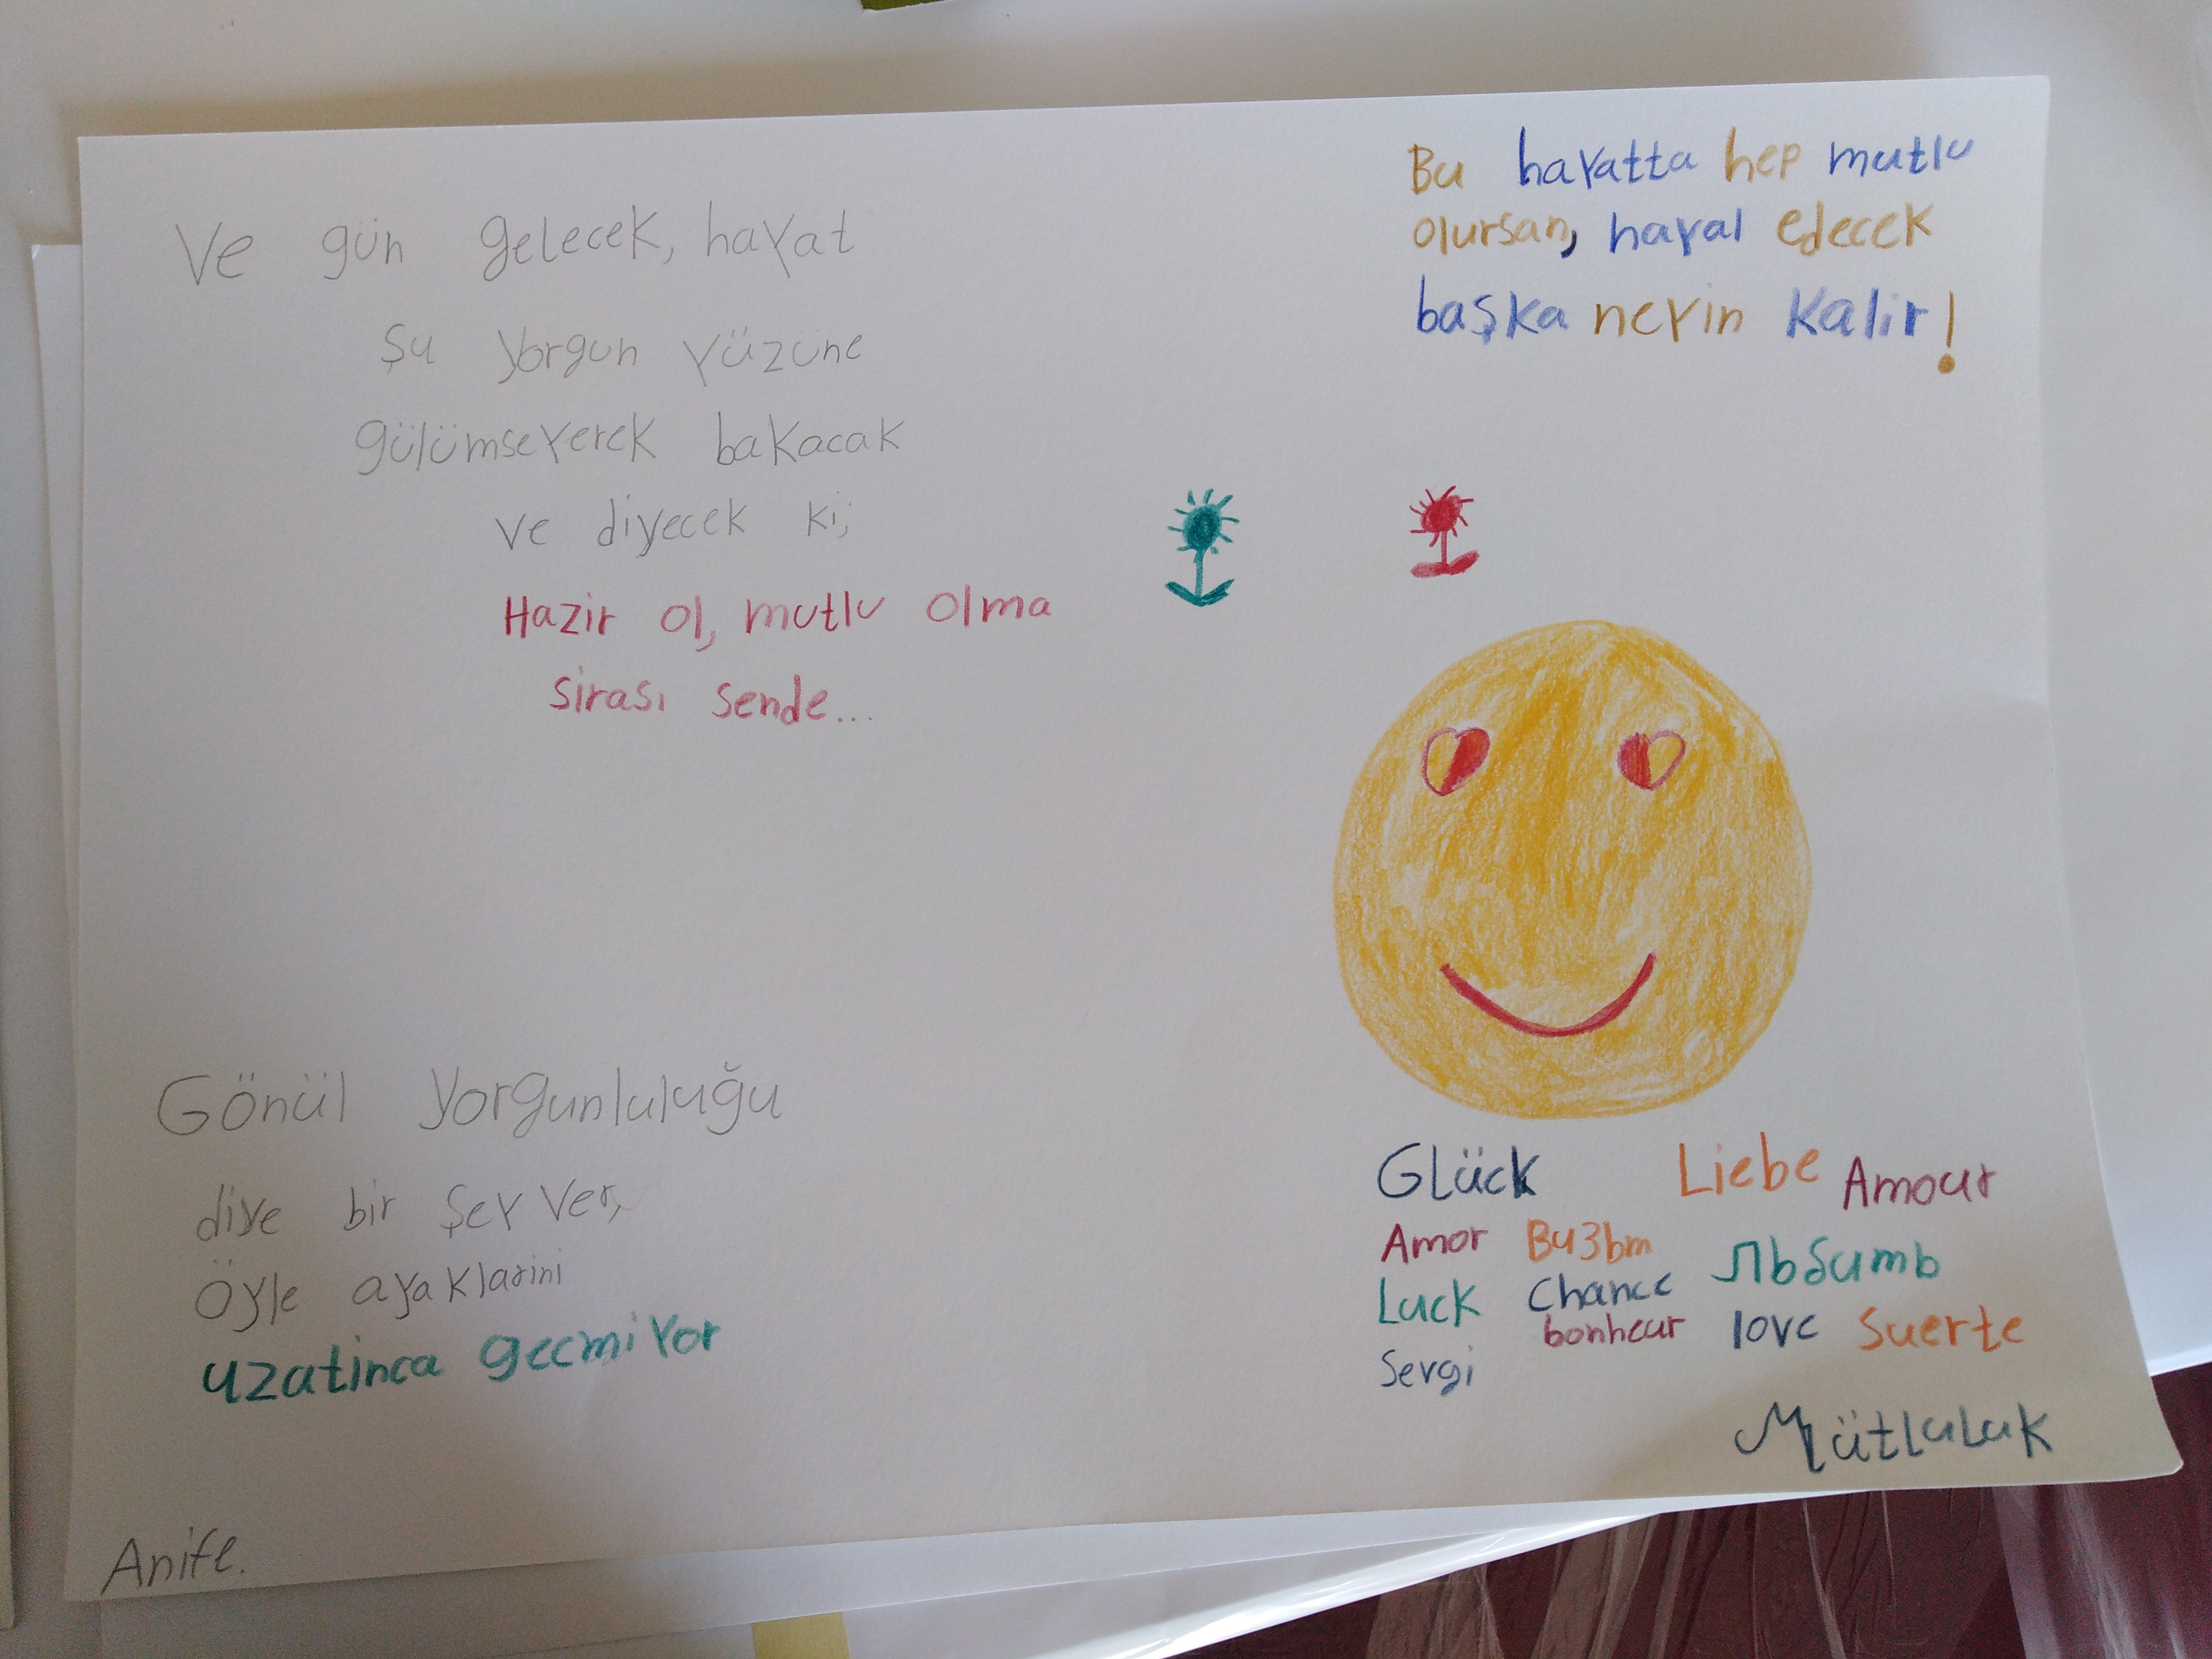 Ve gün gelecek, hayat
şu yorgun yüzüne
gülümseyerek bakacak
ve diyecek ki;
Hazir ol, mutlu olma
sirası sende...
Bu hayatta hep mutlu
olursan, hayal edecek
başka neyin kalir!
Gönül yorgunluluğu
diye bir şey ver,
Öyle ayaklarini
uzatinca gecmiyor
Anife.
Glück Liebe Amour
Amor Видьт Льбить
Luck Chance
bonheur love Suerte
Sevgi
Mütluluk